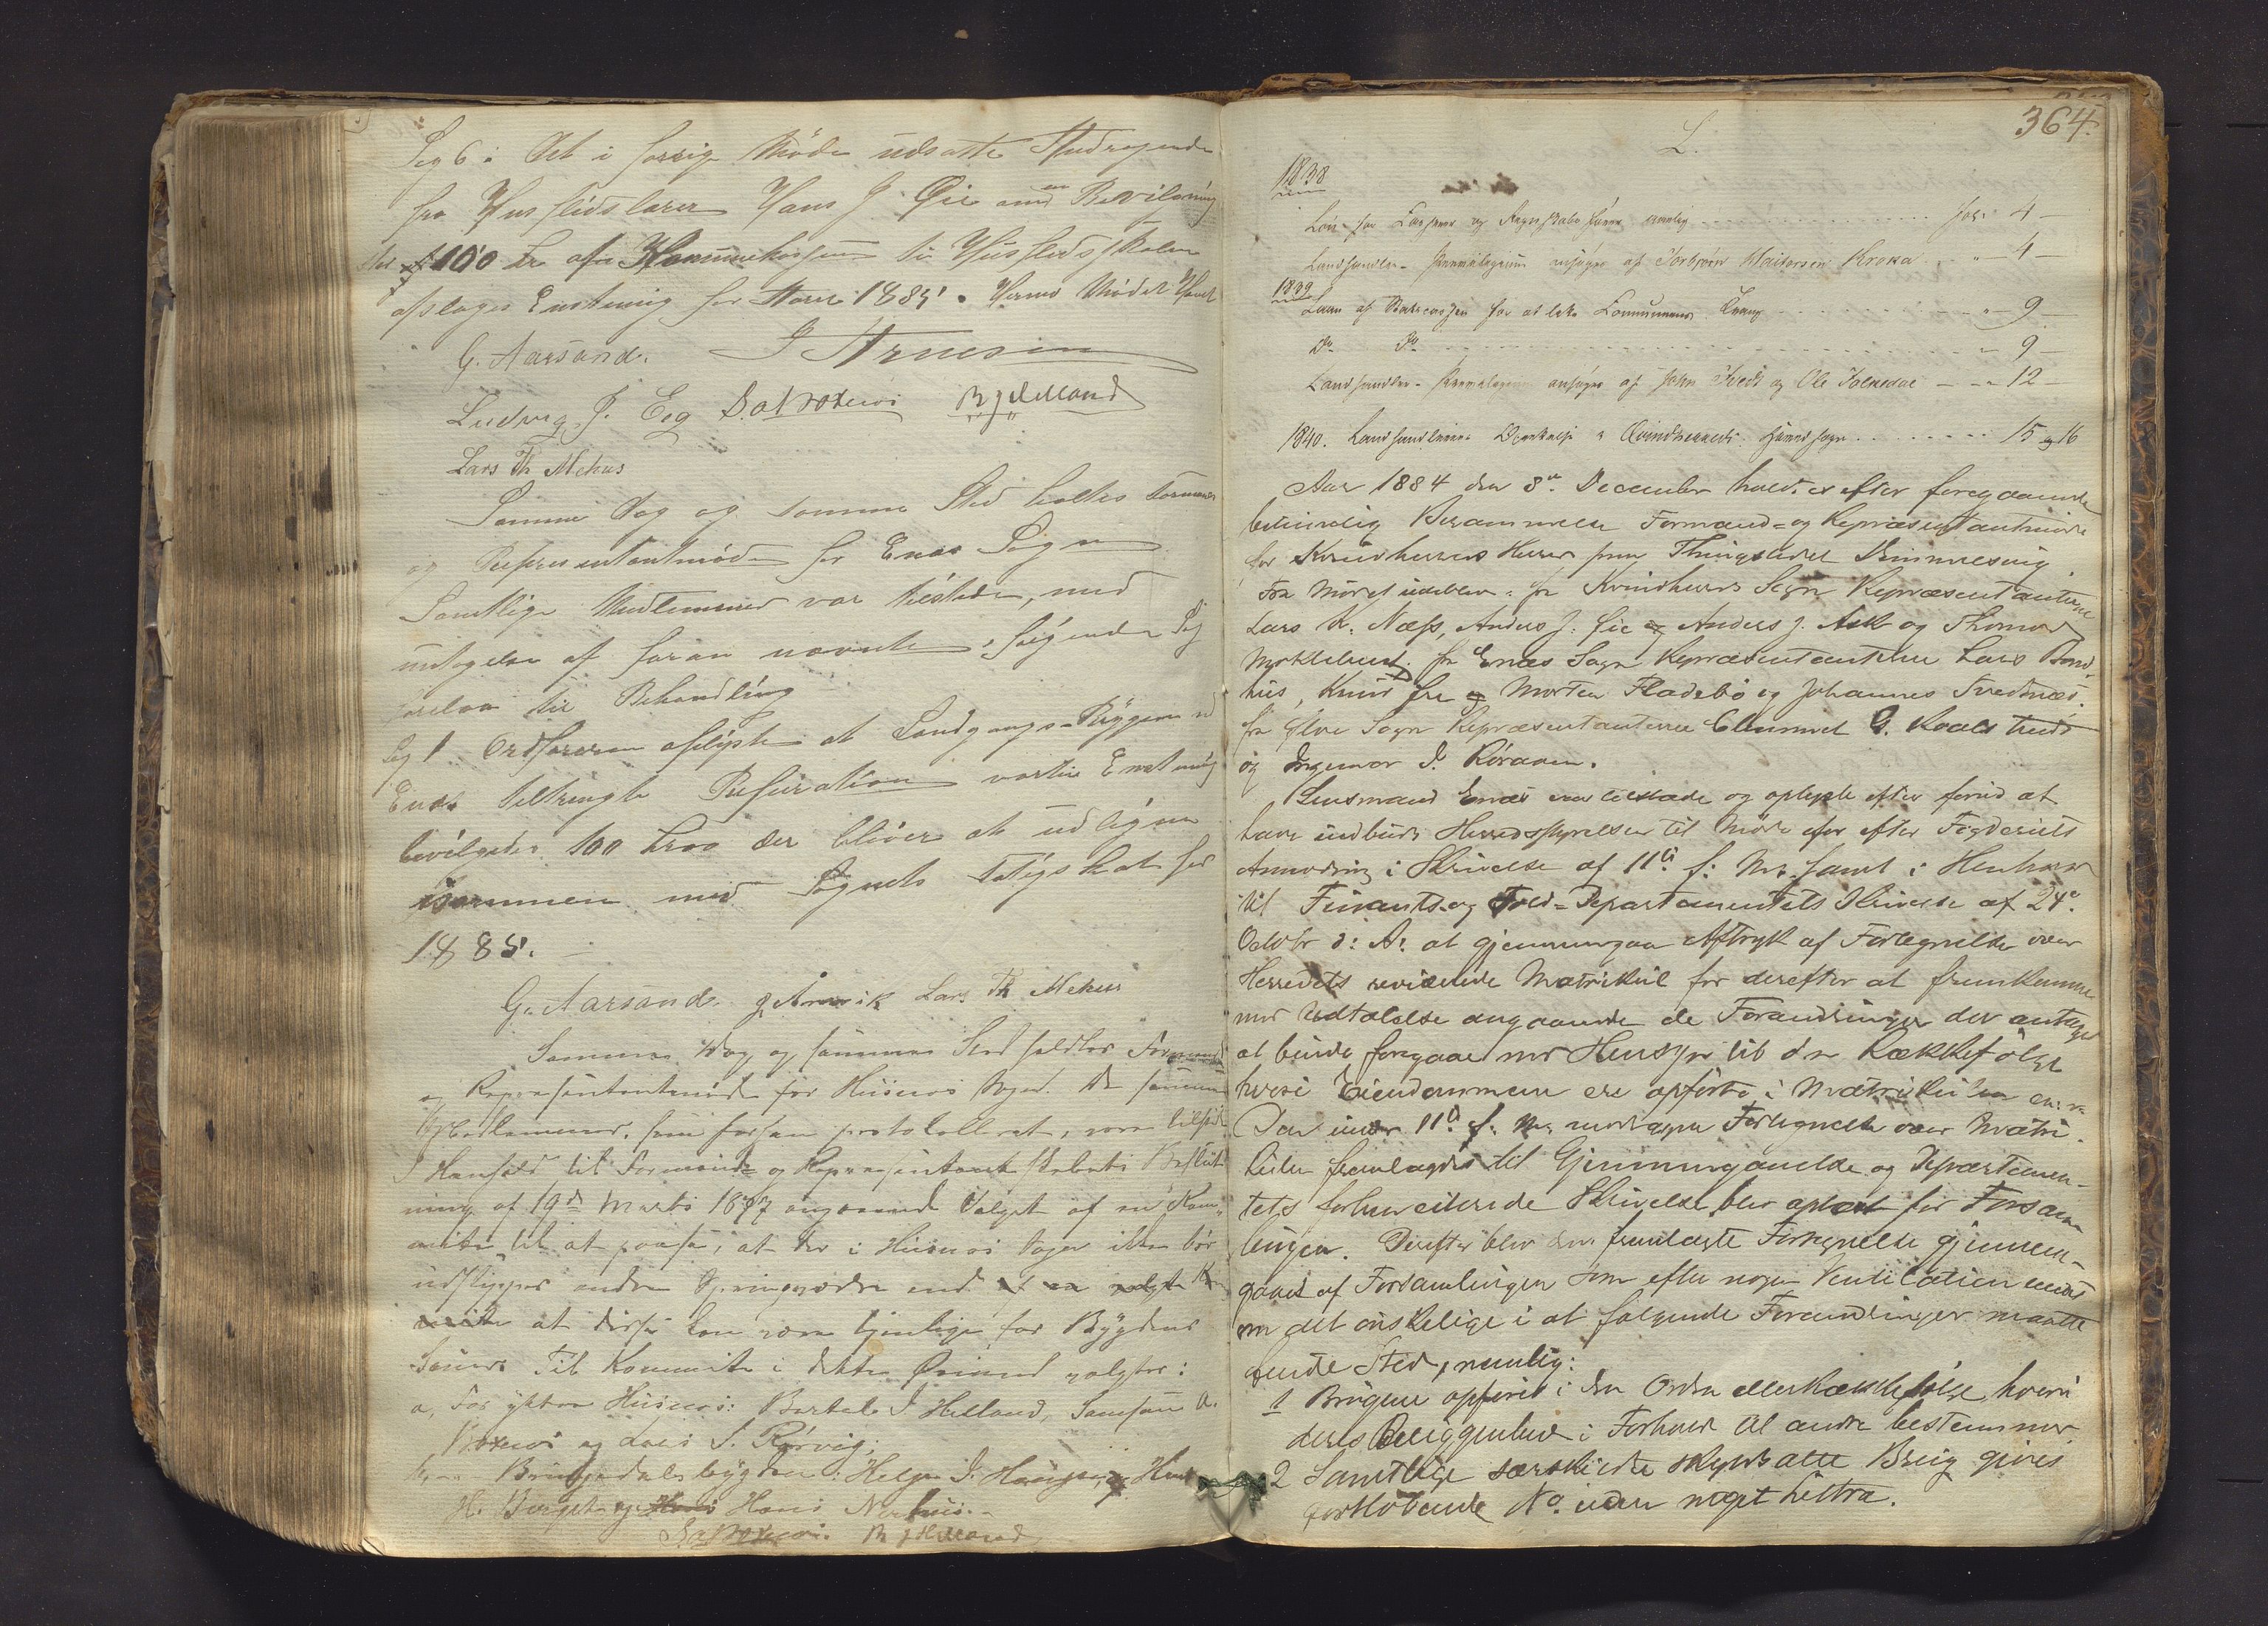 Sag 6: Det i forrige Møde udsatte Andragende
fra Husflidslærer Hans J. Øie om en Bevilgning
stor 100 Kr af Kommunekassen til Husflidsskolen
afslaaes Enstemig for Aaret 1885. Hermed Mødet Hævet
G. Aarsand. J Arnesen
Ludvig J. Eeg S. A. Voxnæs B J Helland
Lars Th Mehus
Samme Dag og samme Sted holdtes Formands
og Representantmøde for Enæs Sogn
Samtlige Medlemmer var tilstede, med
undtagelse af foran nævnte, følgende Sag
forelaa til Behandling
Sag 1 Ordføreren oplyste at Landgangs-Bryggen ved
Enæs tiltrengte Reperation vortil Enstemig
bevilgedes 100 Kroner der bliver at udligne
sammen med Sognets Fatigskat for
1885.
G. Aarsand. J. Arnevik Lars Th Mehus
Samme Dag og samme Sted holdtes Formands
og Repræsentantmøde for Husnæs Sogn. De samme
Medlemmer, som foran protokolleret, vare tilstede
I Henhold til Formands og Repræsentantskabets Beslut-
ning af 19de Marts 1877 angaaende Valget af en Kom-
mite til at paase, at der i Husnæs Sogn ikke bør
udslippes andre Springvædre end
at disse kan være tjenlige for Bygdens
Sauer. Til Kommite i dette Øiemed valgtes:
a, For ytre Husnæs: Bertel J Helland, Samson A.
Voxnæs og Lars S. Rørvig;
b, Bringedalsbygden: Helge J. Haugen, Knut
H. Berget og Hans Nerhus.
S A Voxnæs. B J Helland
364.
L.
1838
Løn for Kasserer og Regnskabsfører Fol. 4 —
Landhandler-Privilegium ansøges af Torbjørn Haavorsen Kroka " 4 —
1839
Laan af Bankcassen for at lette Communens Trang " 9 —
Do Do " 9 —
Landhandler-Privilegium ansøges af John Tvedt og Ole " 12 —
1840. Landhandleres i Qvindherreds Hovedsogn 15 og 16
Aar 1884 den 8de December holdtes efter foregaaende
betimelig Berammelse Formand- og Repræsentantmøde
for Kvindherreds Herred paa Thingstedet Dimmelsvig
Fra Mødet udeblev: fra Kvindherreds Sogn Repræsentanterne
Lars K. Næss, Anders J. Øie og Anders J. Ask og Thomas
Myklebust. fra Enæs Sogn Repræsentanterne Lars Bond-
hus, Knud Fre og Morten Fladebø og Johannes Tvednæs.
fra Ølve Sogn Repræsentanterne Clemmet G. Kvalstved
og Ingemar J. Røraaen.
Lensmand Enæs var tilstede og oplyste efter forud at
have indbudt Herredsstyrelsen til Møde efter Fogderiets
Anmodning i Skrivelse af 11te f. M. samt i Henhold
til Finants- og Told-Departementets Skrivelse af 24de
Octobr d. A. at gjennemgaa Aftryk af Fortegnelse over
Herredets reviderede Matrikul for derefter at fremkomme
med Udtalelse angaaende de Forandringer der antages
at burde foregaa med Hensyn til den Rækkefølge
hvori Eiendommene ere opførte i Matrikulen en.
Den under 11te f. M. modtagne Fortegnelse over Matri-
kulen fremlagdes til Gjennemgaaelse og Departemen-
tets forhenværende Skrivelse blev oplæst for Forsam-
lingen. Derefter blev den fremlagte Fortegnelse gjennem-
gaaet af Forsamlingen som efter nogen Ventilation enedes
om det ønskelige i at følgende Forandringer maatte
finde Sted, nemlig:
1 Brugene opføres i den Orden eller Rækkefølge hvori
deres Beliggenhed i Forhold til andre bestemmer
2 Samtlige særskildte skyldsatte Brug gives
fortløbende No. uden noget Littra.